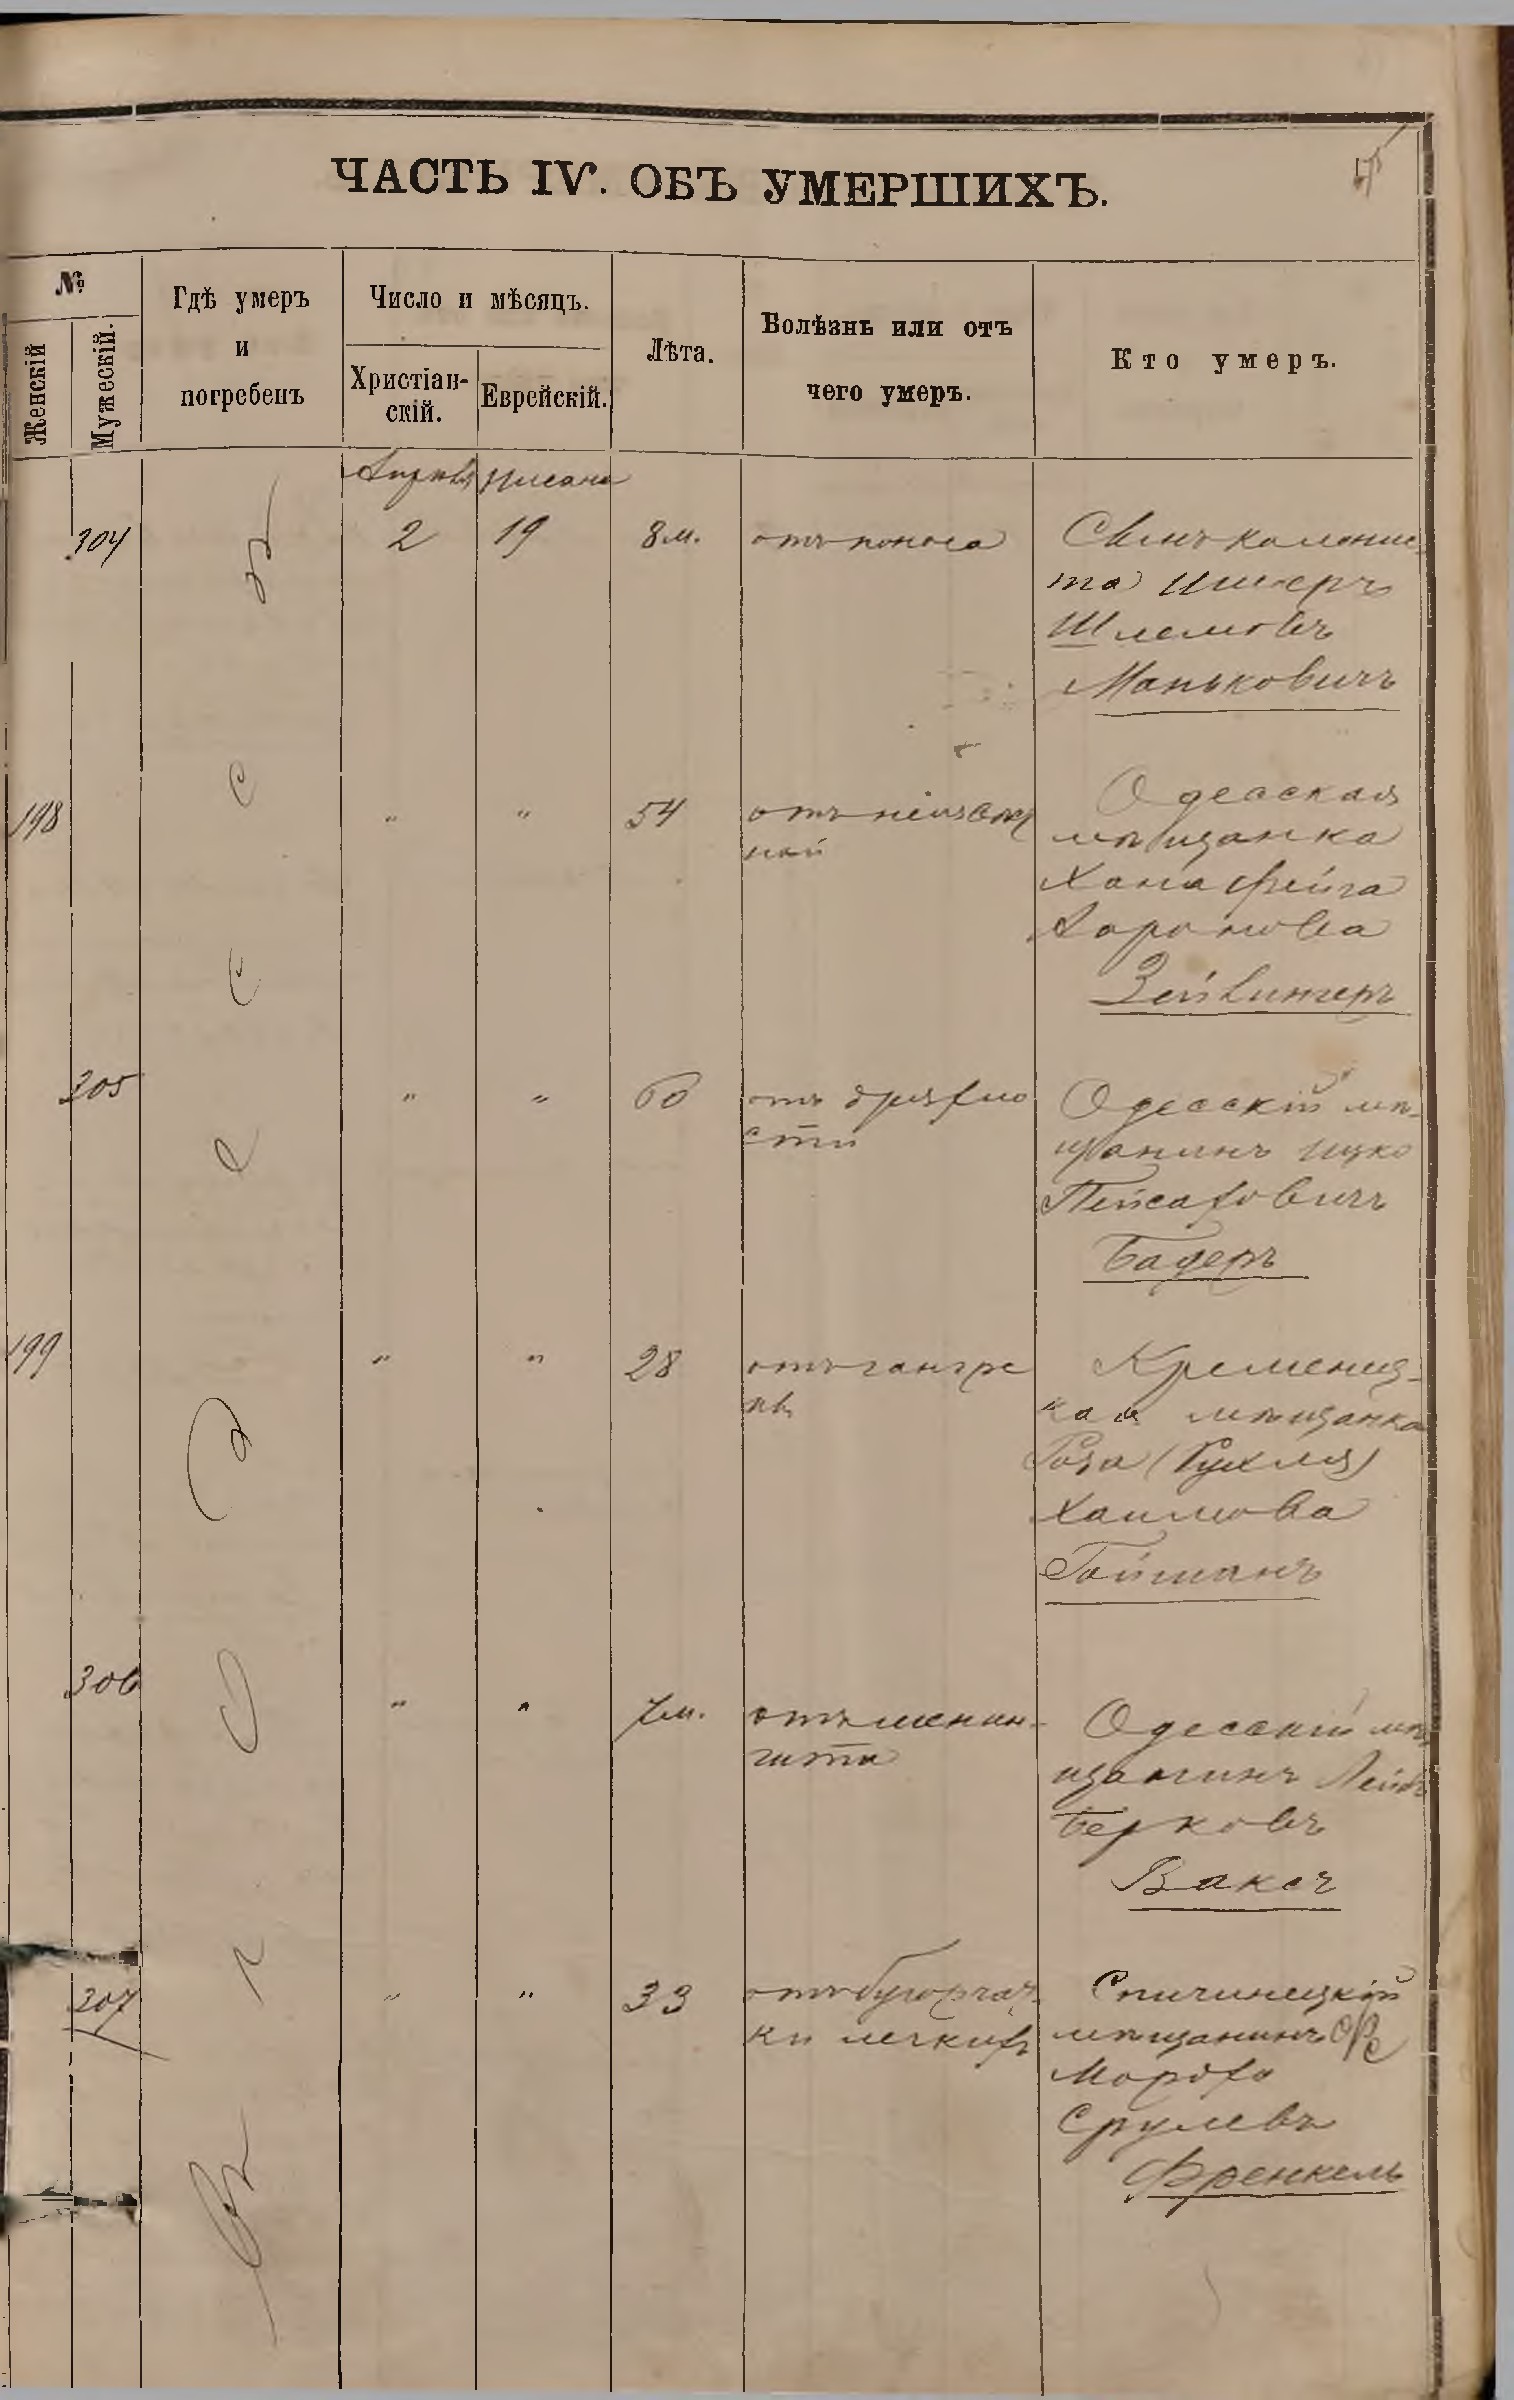 ЧАСТЬ IV. ОБЪ УМЕРШИХЪ.
№
Женскій
Мужескій.
Гдѣ умеръ
и
погребенъ
Число и мѣсяцъ.
Христіан-
скій.
Еврейскій.
Лѣта.
Болѣзнь или отъ
чего умеръ.
Кто умеръ.
въ городѣ Одессѣ
Апрѣля Нисана
304 2 19 8 м. отъ поноса Сынъ колонис-
та Ишеръ
Шлемовъ
Маньковичъ
198 " " 54 отъ
ной
Одесская
мѣщанка
Хана Фейга
Аронова
Зейлингеръ
305 " " 60 отъ дряхло
сти
Одесскій мѣ-
щанинъ Ицко
Пейсаховичъ
Бадеръ
199 " " 28 отъ гангре
ны
Кременец-
кая мѣщанка
Роза (Рухля)
Хаимова
Гойманъ
306 " " 7 м. отъ менин-
гита
Одесскій мѣ-
щанинъ Лейбъ
Берковъ
Ваксъ
307 " " 33 отъ бугорчат-
ки легкихъ
Спичинецкій
мѣщанинъ
Мордхо
Срулевъ
Френкель